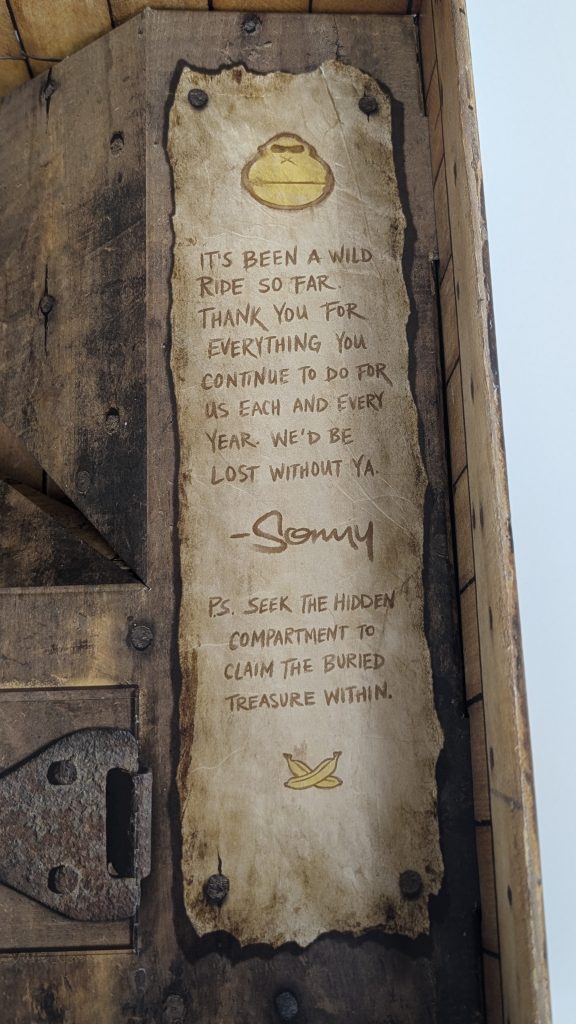 IT'S BEEN A WILD
RIDE SO FAR.
THANK YOU FOR
EVERYTHING YOU
CONTINUE TO DO FOR
US EACH AND EVERY
YEAR. WE'D BE
LOST WITHOUT YA.
-Sonny
P.S. SEEK THE HIDDEN
COMPARTMENT TO
CLAIM THE BURIED
TREASURE WITHIN.